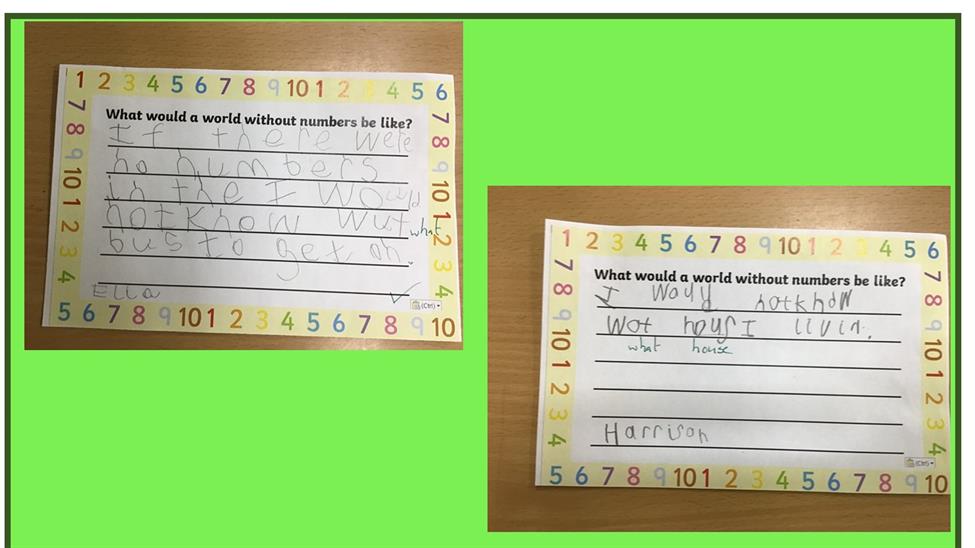 1 2 3 4 5 6 7 8 9 10 1 2 3 4 5 6
What would a world without numbers be like?
If there were
no numbers
in the I would
not know wut what
bus to get on.
Ella ✓
(Ctrl)
7 8 9 10 1 2 3 4
7 8 9 10 1 2 3 4
5 6 7 8 9 10 1 2 3 4 5 6 7 8 9 10
1 2 3 4 5 6 7 8 9 10 1 2 3 4 5 6
What would a world without numbers be like?
I woud not know
Wot hous I liv in.
what house
Harrison
(Ctrl)
7 8 9 10 1 2 3 4
7 8 9 10 1 2 3 4
5 6 7 8 9 10 1 2 3 4 5 6 7 8 9 10